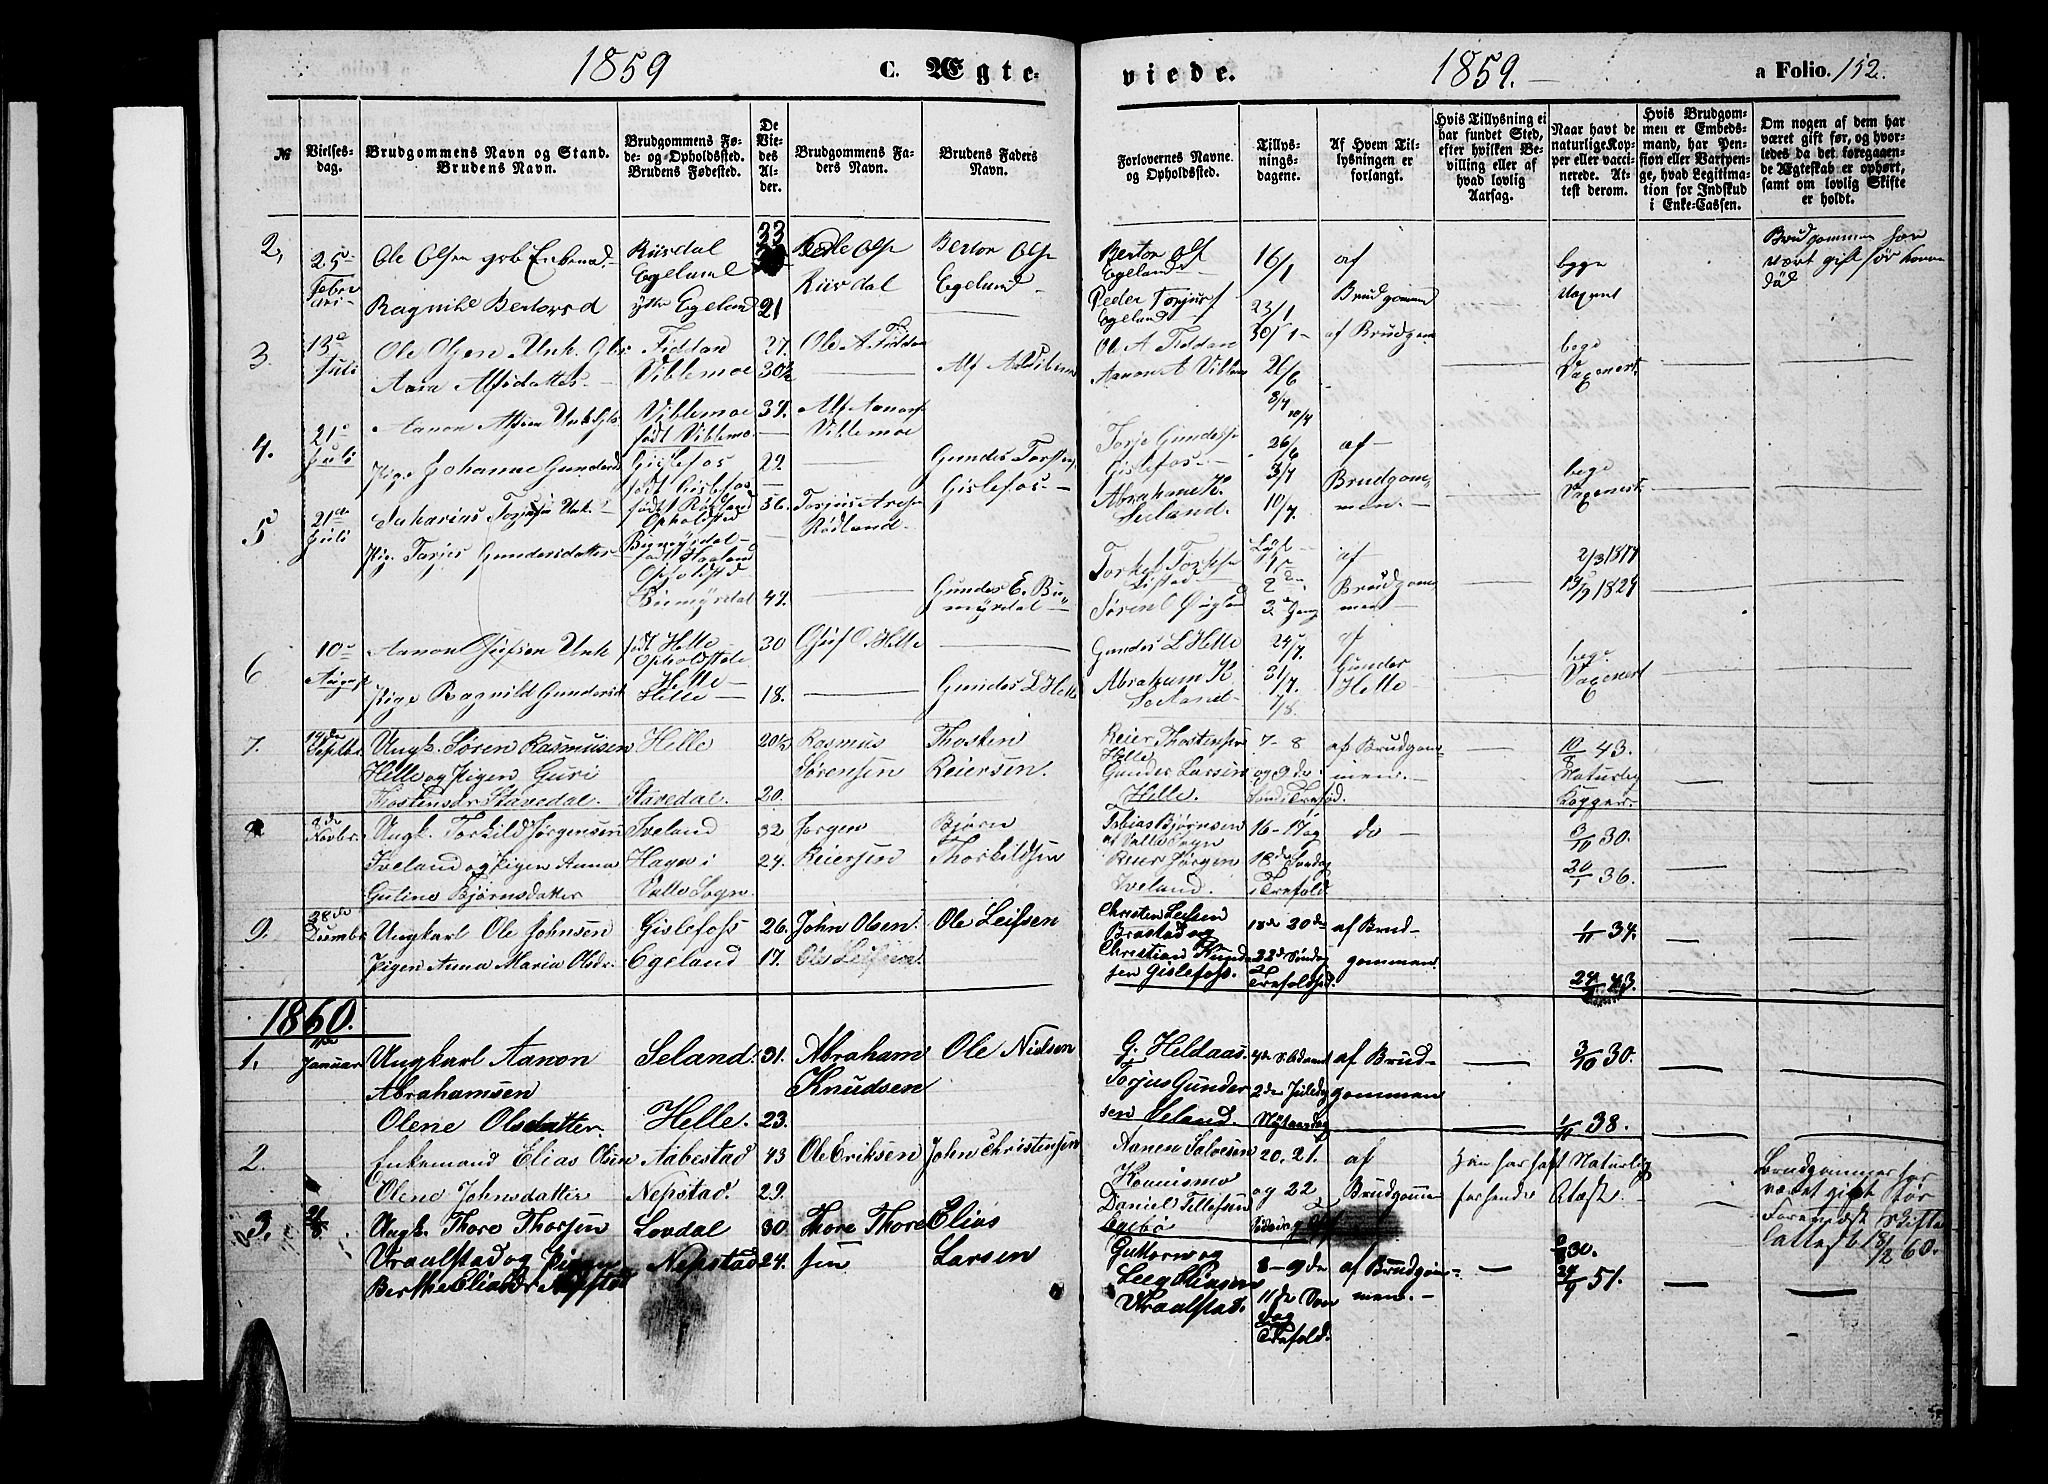 1859 C. Ægte-
viede. 1859. a Folio. 152.
№
Vielses-
dag.
Brudgommens Navn og Stand.
Brudens Navn.
Brudgommens Fø-
de- og Opholdssted.
Brudens Fødested.
De
Vie-
des
Al-
der.
Brudgommens Fa-
ders Navn.
Brudens Faders
Navn.
Forlovernes Navne
og Opholdssted.
Tillys-
nings-
dagene.
Af Hvem Til-
lysningen er
forlangt.
Hvis Tillysning ei
har fundet Sted,
efter hvilken Be-
villing eller af
hvad lovlig
Aarsag.
Naar havt de
naturlige Kop-
per eller vacci-
nerede. At-
test derom.
Hvis Brudgom-
men er Embeds-
mand, har Pen-
sion eller Vartpen-
ge, hvad Legitima-
tion for Indskud
i Enke-Cassen.
Om nogen af dem har
været gift før, og hvor-
ledes da det foregaaen-
de Ægteskab er ophørt,
samt om lovlig Skifte
er holdt.
2,
25
Ole Olsen
Ragnild Bertorsd
Riisdal
Egeland
ytre Egeland
33
21
Ole Olss
Riisdal
Bertor Olss
Egeland
Bertor Ols
Egeland
Peder Torjus
Egeland
16/1
23/1
30/1
af
Brudgomm
Brudgommen har
vært gift før
død
3.
13
Juli
Ole Olsen Unk.
Aasa Alfsdatter
Fiddan
Viblemoe
27.
30½
Ole A. Fiddan
Ole A Fiddan
Aanon A Viblem
26/6
3/7
10/7
af Brudgom
bege
Vaxenert
4.
21
Juli
Aanon Alfsen
Pige Johanne Gundersd
Viblemoe
født Viblemo
Gislefos
født Gislefos
34.
29.
Alf Aanons
Viblemoe
Gundes Torsten
Gislefos
Torje Gundess
Gislefos
Abraham K.
Seeland.
26/6
3/7
10/7.
af
Brudgom
men.
bege
Vaxenert
5
21de
Juli
Sakarias Torjusen Unk.
Pige Torjer Gundersdatter
født Rødland
Opholdsted
født Haaland
Opholdsted
Biemyrdal
36.
47.
Torjus Ares
Rødland.
Gundes E. Bu
myrdal
Torkel
Søren
2den
3de Gang
af
Brudgom
men
2/3 1817
1829
6
10
August
Aanon Unk
Pige Ragnild Gundersd
født Helle
Opholdsted
Helle
Helle
30
18.
O. Helle
Gundes L Helle
Gundes L Helle
Abraham K.
Seeland
24/7.
31/7.
7/8.
af
Gunder
Helle
bege
Vaxenert
7.
Septbr.
Ungk. Søren Rasmusen
Helle og Pigen Guri
Thostensdr Stavedal.
Helle
Stavedal.
20½
20.
Rasmus
Sørensen
Thosten
Reiersen.
Reier Thostensen
Helle
Gunder Larsen
Helle.
7-8
og 9de
af Brudgom
men.
10/8 43.
Naturlig
Kopper.
8
2de
Novbr.
Ungk. Torkild Jørgensen
Iveland og Pigen Anna
Guline Bjørnsdatter
Iveland
Hagen i
Valle Sogn.
32
24.
Jorgen
Reiersen
Bjørn
Thorkildsen
Tobias Bjørnsen
af Valle Sogn
Reier Jørgen
Iveland.
16-17 og
18de Søndag
i Trefold
do
3/10 30.
20/1 36.
9.
28de
Ungkarl Ole Johnsen
Pigen Anna Maria Olsdr.
Gislefoss
Egeland
26.
17.
John Olsen.
Ole Leifsen
Ole Leifsen
Christen Leifsen
Brastad og
Christian Knud
sen Gislefoss.
18de 20de
22de Søndag
Trefoldhed.
af Brud-
gommen.
1/11 34.
24/ 43.
1860.
1.
11te
Januar
Ungkarl Aanon
Abrahamsen
Olene Olsdatter.
Seland.
Helle.
31.
23.
Abraham
Knudsen
Ole Nielsen
G. Heldaas.
Torjus Gunder
sen Seland.
4de S. i Advent
2den Juledag
Nytaarsdag
af Brud-
gommen
3/10 30.
1/11 38.
2.
Enkemand Elias Olsen
Olene Johnsdatter
Aabestad
Nepstad.
43
29.
Ole Eriksen
John Christensen
Aanen Salvesen
Daniel Tellefsen
20. 21.
og 22
af
Brudgomme
Han har haft Naturlig
forhen
Atæst.
Brudgommen har
været gift før
Foreviist Skifte
attest 18/2 60.
3.
Ungk. Thore Thorsen
Vraalstad og Pigen
Berthe Eliasdr Nepstad
Lovdal
Nepstad
30.
24.
Thore Thore
sen
Elias
Larsen
Guttorm og
Leeg Eliasen
Vraalstad.
8-9de
11te Søn
dag
Trefold.
af Brudgom-
men.
30.
24/9 51.